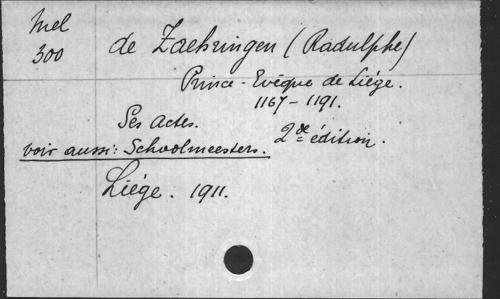 Mel
300
de Zaehringen (Radulphe)
Prince-Evêque de Liége.
1167-1191.
Ses Actes.
2de édition.
voir aussi: Schoolmeesters.
Liége. 1911.